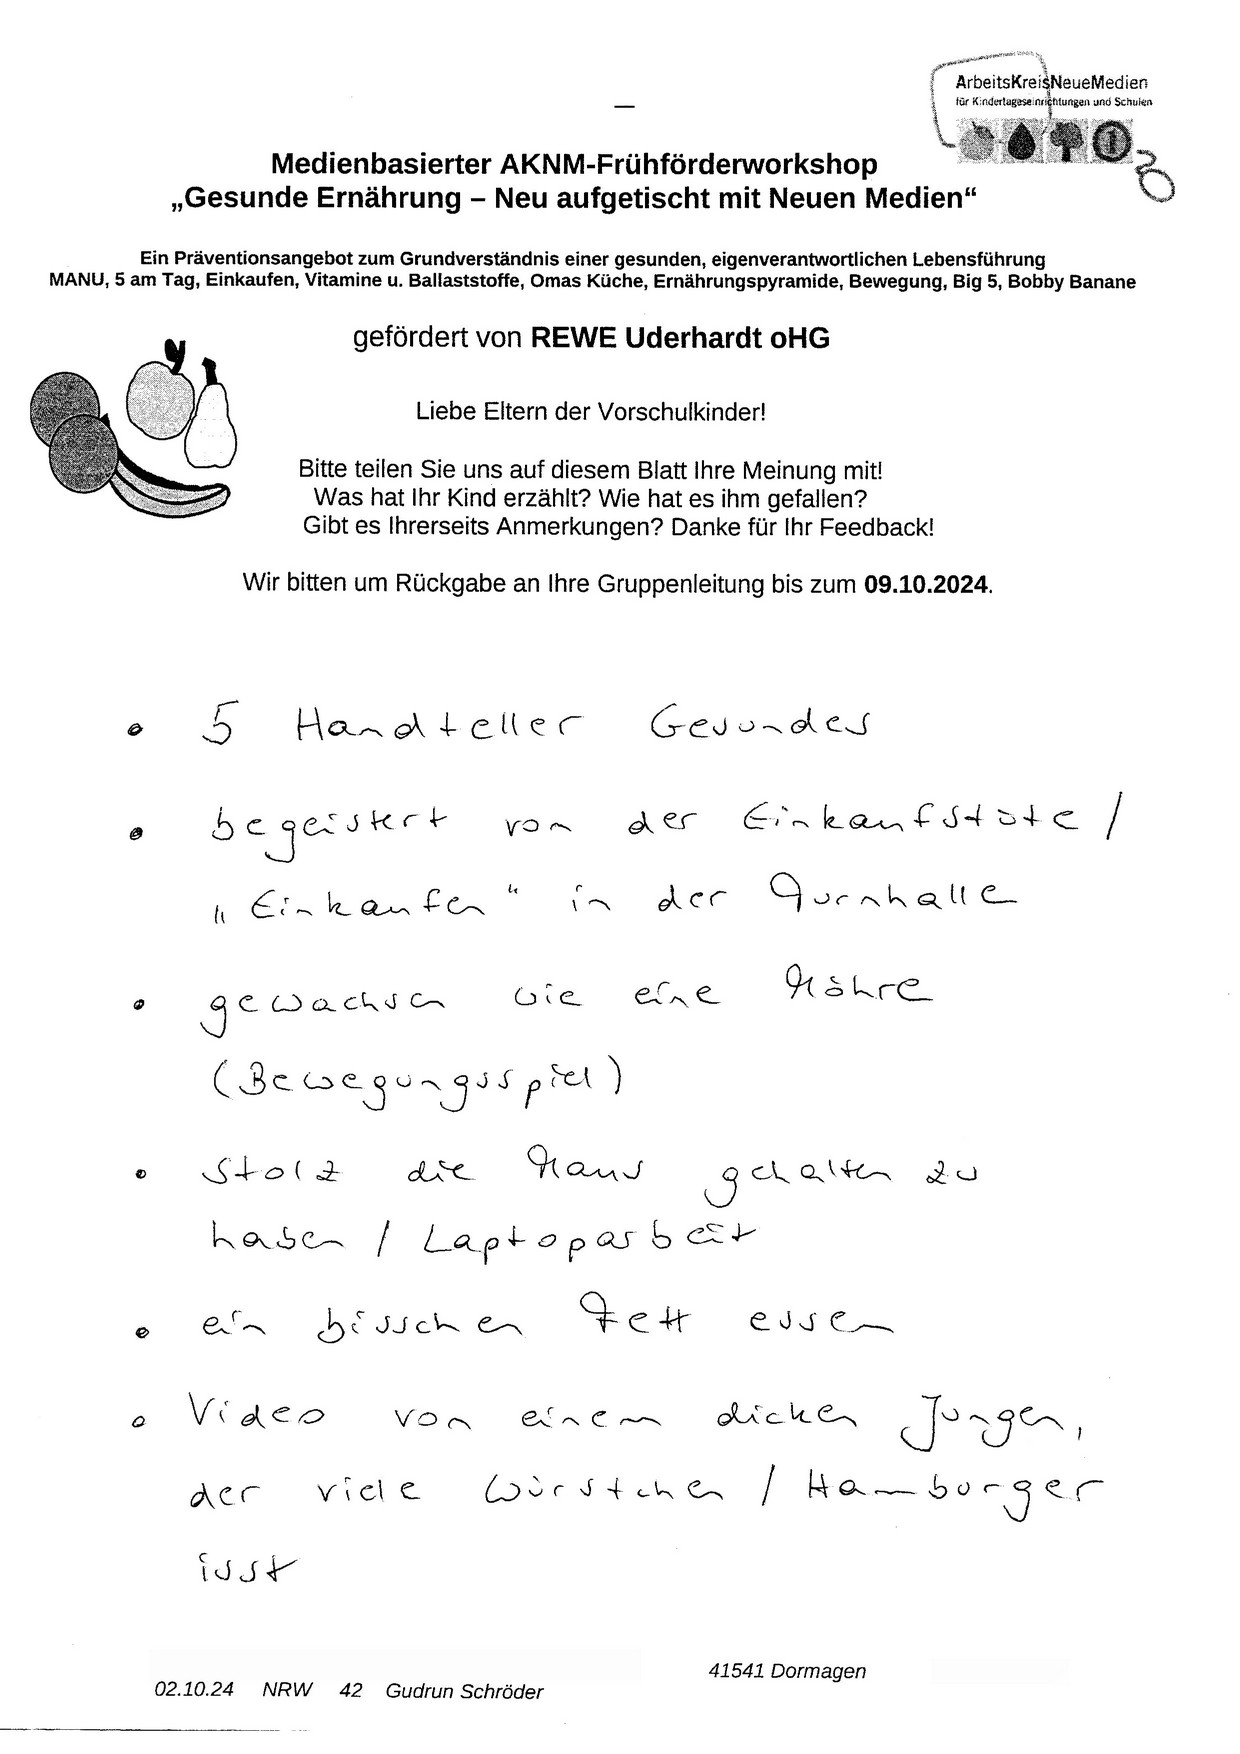 ArbeitsKreisNeueMedien
für Kindertageseinrichtungen und Schulen
Medienbasierter AKNM-Frühförderworkshop
„Gesunde Ernährung – Neu aufgetischt mit Neuen Medien“
Ein Präventionsangebot zum Grundverständnis einer gesunden, eigenverantwortlichen Lebensführung
MANU, 5 am Tag, Einkaufen, Vitamine u. Ballaststoffe, Omas Küche, Ernährungspyramide, Bewegung, Big 5, Bobby Banane
gefördert von REWE Uderhardt oHG
Liebe Eltern der Vorschulkinder!
Bitte teilen Sie uns auf diesem Blatt Ihre Meinung mit!
Was hat Ihr Kind erzählt? Wie hat es ihm gefallen?
Gibt es Ihrerseits Anmerkungen? Danke für Ihr Feedback!
Wir bitten um Rückgabe an Ihre Gruppenleitung bis zum 09.10.2024.
• 5 Handteller Gesundes
• begeistert von der Einkaufstüte /
„Einkaufen“ in der Turnhalle
• gewachsen wie eine Möhre
(Bewegungsspiel)
• stolz die Maus gehalten zu
haben / Laptoparbeit
• ein bisschen Fett essen
• Video von einem dicken Jungen,
der viele Würstchen / Hamburger
isst
41541 Dormagen
02.10.24 NRW 42 Gudrun Schröder